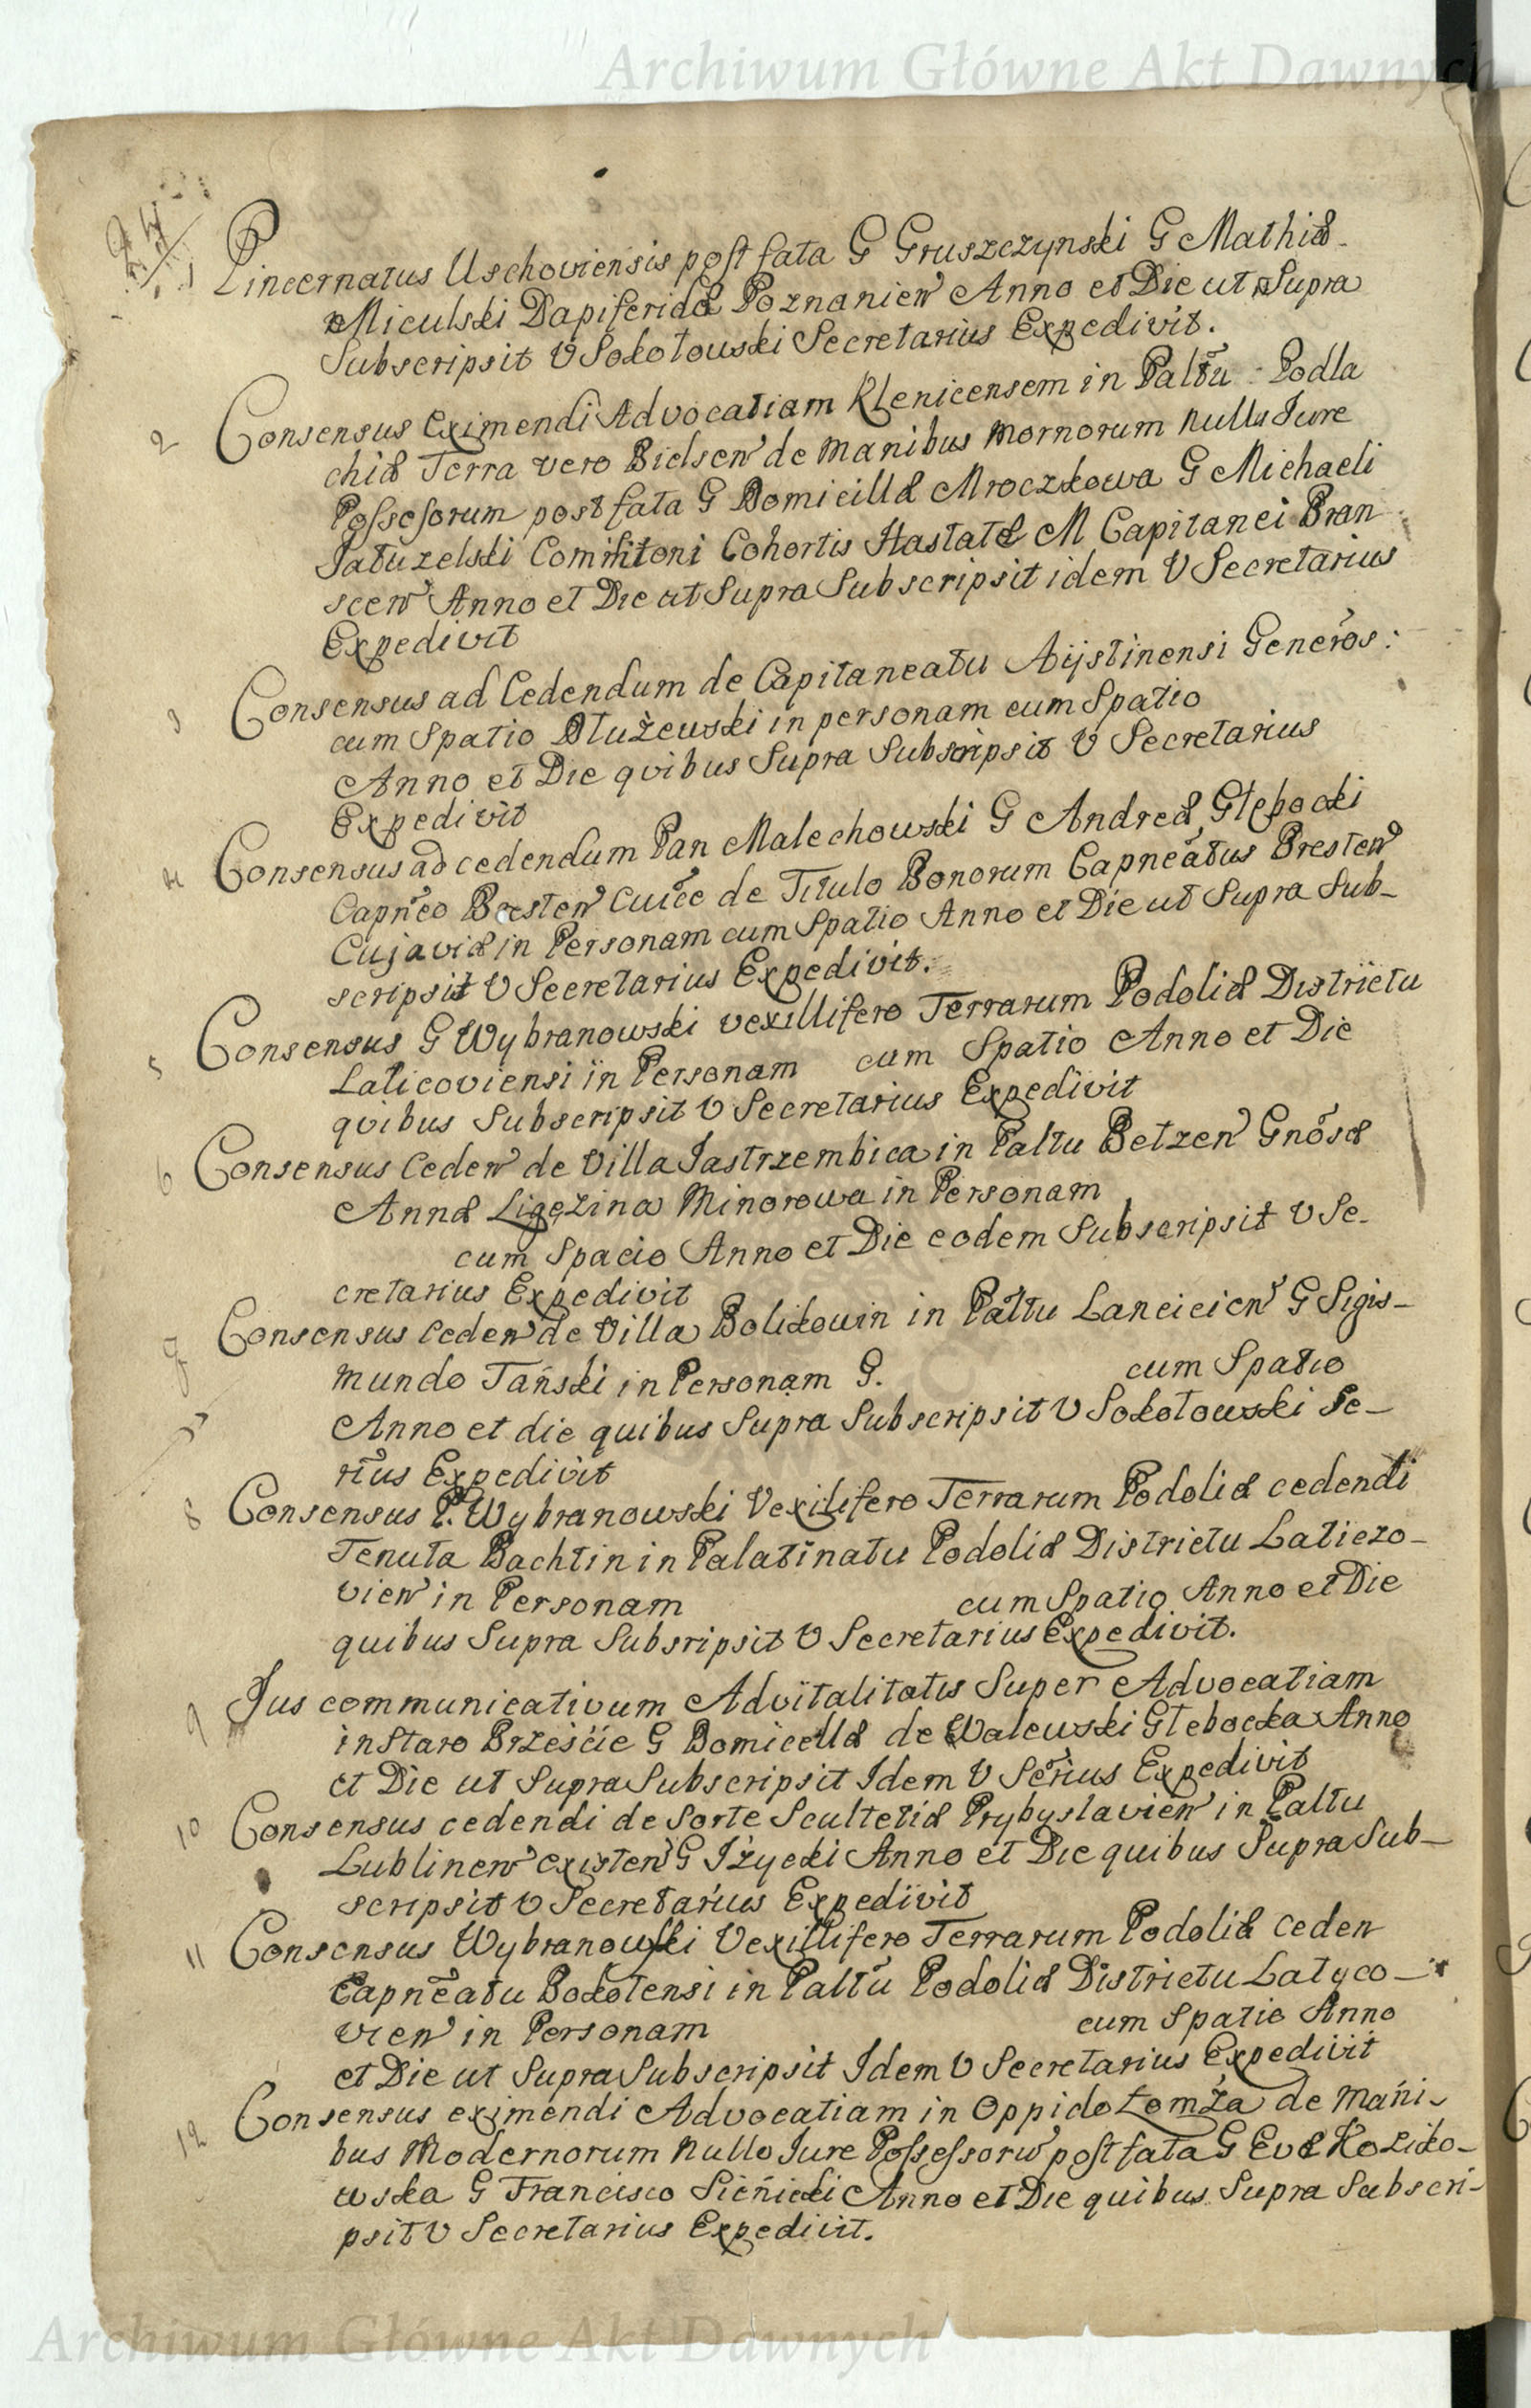 Archiwum Główne Akt Dawnych
24
1 Pincernatus Uschoviensis post fata G Gruszczynski G Mathiæ
Miculski Dapiferidæ Poznanien Anno et Die ut Supra
Subscripsit V Sokołowski Secretarius Expedivit.
2 Consensus Eximendi Advocatiam Klenicensem in Paltũ Podla
chiæ Terra vero Bielsen de manibus mornorum nullo Jure
Possesorum post fata G Domicillæ Mroczkowa G Michaeli
Jatuzelski Comilitoni Cohortis Hastatæ M Capitanei Bran
scen Anno et Die ut Supra Subscripsit idem V Secretarius
Expedivit
3 Consensus ad Cedendum de Capitaneatu Aijstinensi Generos:
cum Spatio Dłużewski in personam cum Spatio
Anno et Die qvibus Supra Subscripsit V Secretarius
Expedivit
4 Consensus ad cedendum Pan Malechowski G Andreæ Głębocki
Capneo Bresten Cuice de Titulo Bonorum Capneatus Bresten
Cujaviæ in Personam cum Spatio Anno et Die ut Supra Sub-
scripsit V Secretarius Expedivit.
5 Consensus G Wybranowski vexillifero Terrarum Podoliæ Districtu
Laticoviensi in Personam cum Spatio Anno et Die
qvibus Subscripsit V Secretarius Expedivit
6 Consensus Ceden de Villa Jastrzembica in Paltu Betzen Gnosæ
Annæ Ligęzina Minorowa in Personam
cum Spacio Anno et Die eodem Subscripsit V Se-
cretarius Expedivit
7 Consensus Ceden de Villa Bolikowin in Paltu Lancicien G Sigis-
mundo Tański in Personam G. cum Spatio
Anno et die quibus Supra Subscripsit V Sokołowski Se-
rius Expedivit
8 Consensus P. Wybranowski Vexilifero Terrarum Podoliæ cedendi
Tenuta Bachtin in Palatinatu Podoliæ Districtu Laticzo-
vien in Personam cum Spatio Anno et Die
quibus Supra Subsripsit V Secretarius Expedivit.
9 Jus communicativum Advitalitatis Super Advocatiam
in Staro Brzeście G Domicellæ de Walewski Głebocka Anno
et Die ut Supra Subscripsit Idem V Serius Expedivit
10 Consensus cedendi de Sorte Scultetiæ Prybyslavien in Paltu
Lublinen existen G Iżycki Anno et Die quibus Supra Sub-
scripsit V Secretarius Expedivit
11 Consensus Wybranowski Vexillifero Terrarum Podoliæ Ceden
Capneatu Bokotensi in Paltũ Podoliæ Districtu Latyco-
vien in Personam cum Spatio Anno
et Die ut Supra Subscripsit Idem V Secretarius Expedivit
12 Consensus eximendi Advocatiam in Oppido Łomża de Mani-
bus Modernorum Nullo Jure Possessorũ post fata G Evæ Koziko-
wska G Francisco Sienicki Anno et Die quibus Supra Subscri-
psit V Secretarius Expedivit.
Archiwum Główne Akt Dawnych